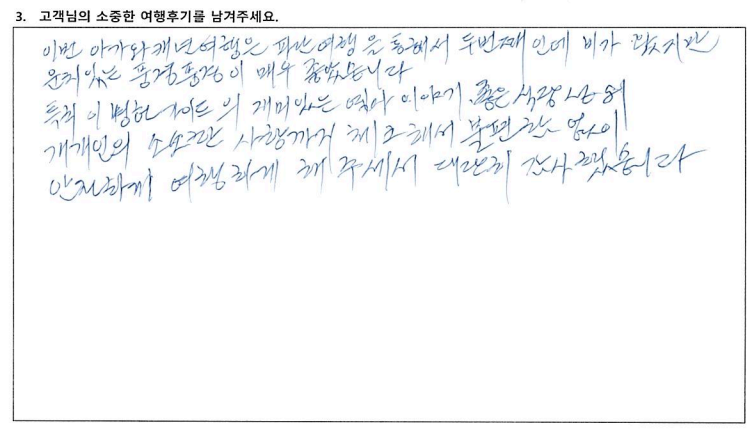 3. 고객님의 소중한 여행후기를 남겨주세요.
이번 아가와캐년여행은 파란여행을 통해서 두번째인데 비가 왔지만
운치있는 풍경풍경이 매우 좋았습니다
특히 이병헌 가이드의 재미있는 역사 이야기, 좋은 식당
개개인의 소소한 사항까지 체크해서 불편함 없이
안전하게 여행하게 해 주셔서 대단히 감사했습니다